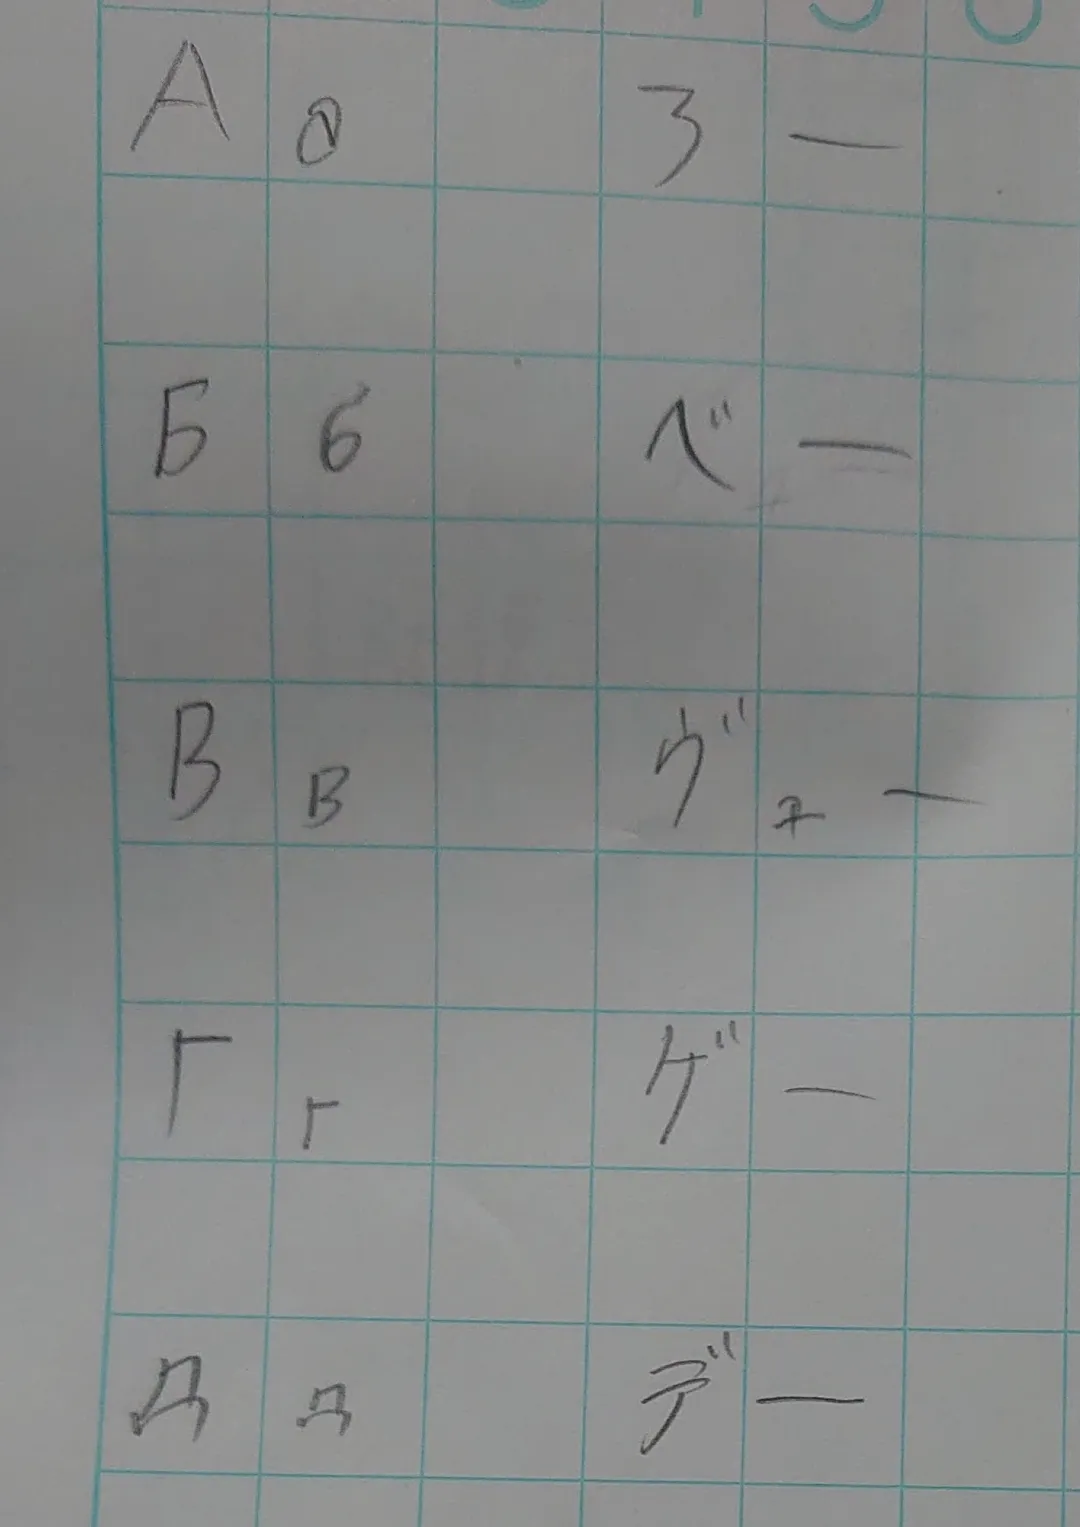 А а アー
Б б ベー
В в ヴェー
Г г ゲー
Д д デー